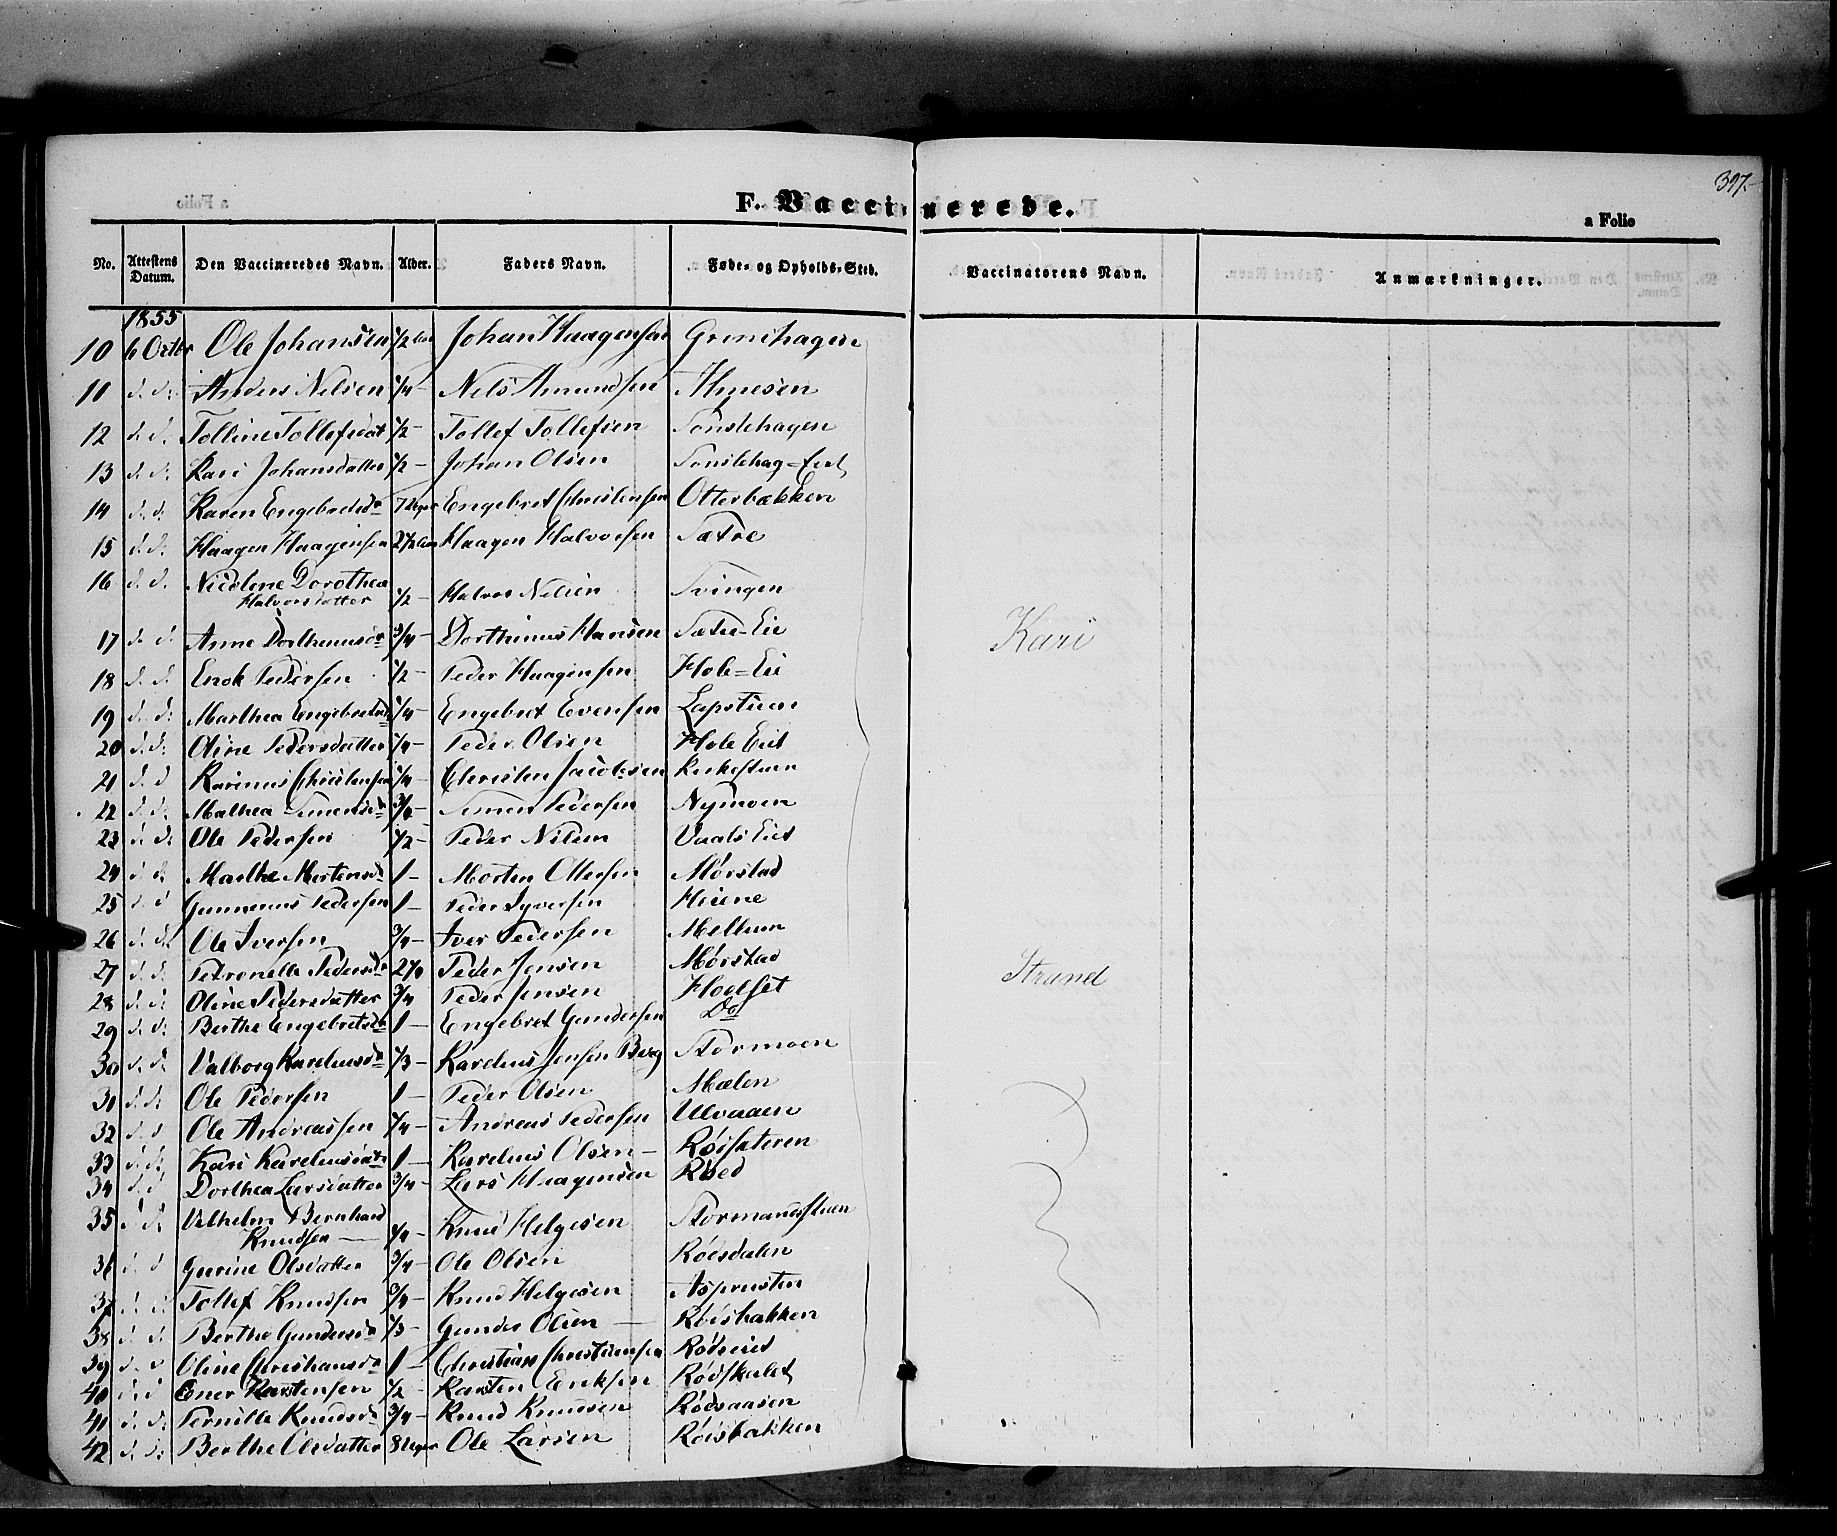 397.
F. Vaccinerede.
a Folio
No. Attestens Datum. Den Vaccineredes Navn. Alder. Faders Navn. Føde- og Opholds-Sted. Vaccinatorens Navn. Anmærkninger.
1855
10 6 Octbr Ole Johansen 1/2 Johan Haagensen
11 d. d. Anders Nilsen 1/4 – Nils Amundsen
12 d. d. Tolline Tollefsdat 1/2 – Tollef Tollefsen Tonslehagen
13 d. d. Kari Johansdatter 1/2 – Johan Olsen
14 d. d. Karen Engebretsd 7 Uger Engebret Christensen Otterbækken
15 d. d. Haagen Haagensen 2 1/2 Haagen Halvorsen Sætre
16 d. d. Nicoline Dorothea
Halvorsdatter 1/2 – Halvor Nilsen Svingen
17 d. d. Anne 3/4 – Dorthinus Hansen Sætre-Eie Kari
18 d. d. Enok Pedersen 1/2 – Peder Haagensen Hole-Eie
19 d. d. Marthea Engebretsd 1/4 – Engebret Evensen
20 d. d. Oline Pedersdatter 1/4 – Peder Olsen Hole Eiet
21 d. d Karinus Christensen 1/4 – Christen Jacobsen
22 d. d. Mathea Simensd 3/4 – Simen Pedersen Nymoen
23 d. d. Ole Pedersen 1/2 – Peder Nilsen Vaals Eiet
24 d. d. Marthe Mortensd 1 – Morten Ottersen Mørstad
25 d. d Gunnerius Pedersen 1 – Peder Syversen
26 d. d. Ole Iversen 3/4 – Iver Pedersen Mellum
27 d. d. Petronelle Pedersd Peder Jensen Mørstad
28 d. d. Oline Pedersdatter 3/4 Peder Jensen Strand
29 d. d. Berthe Engebretsd 1 – Engebret Gundersen Do
30 d. d. Valborg Kareliusd 1/3 – Karelius Jensen Berg Stormoen
31 d. d. Ole Pedersen 1 – Peder Olsen Mælen
32 d. d Ole Andreassen 1/4 – Andreas Pedersen Ulvaaen
33 d. d. Kari Kareliusdatr 1 – Karelius Olsen –
34 d. d Dorthea Larsdatter 3/4 – Lars Haagensen
35 d. d. Vilhelm Bernhard
Knudsen – 1/4 – Knud Helgesen
36 d. d Gurine Olsdatter 3/4 – Ole Olsen Røisdalen
37 d. d. Tollef Knudsen 3/4 – Knud Helgesen
38 d. d. Berthe Gundersd 1/3 – Gunder Olsen – Røisbakken
39 d. d Oline Christiansd 1 – Christian Christiansen Rødseiet
40 d. d Ener Karstensen 1/2 – Karsten Eriksen
41 d. d. Pernille Knudsd 3/4 – Knud Knudsen Rødsaasen
42 d. d. Berthe Olsdatter 8 Uger Ole Larsen Røisbakken